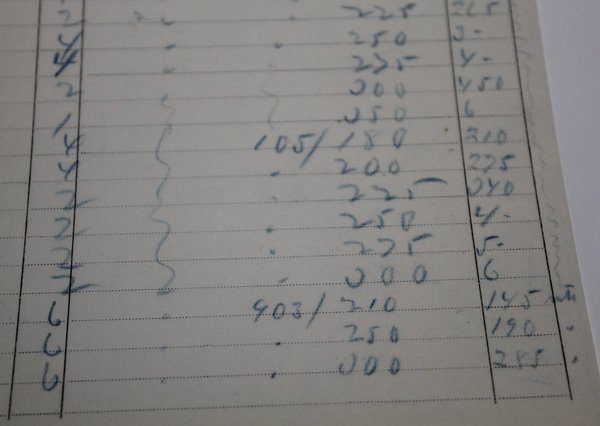 2 " . 225 265
4 . . 250 3-
4 - . 275 4-
2 300 450
1 350 6
4 105/180 210
4 . 200 275
2 225 340
2 . 250 4-
2 . 275 5-
2 . 300 6
6 . 403/210 145
6 . . 250 190 .
6 . . 300 255 .